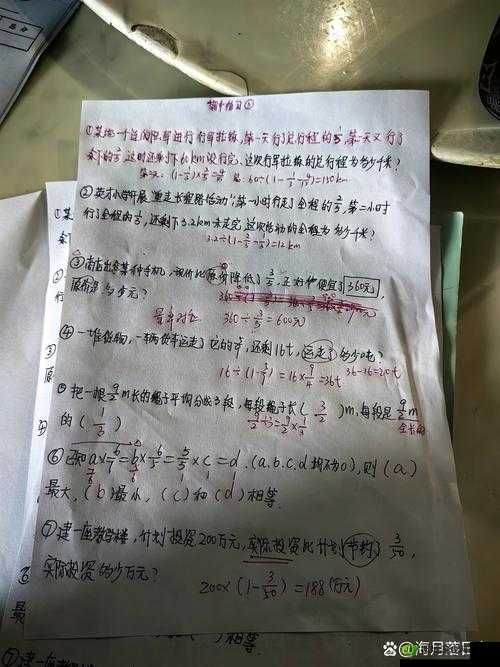 期中练习①
①某地一个连的官兵进行行军拉练,第一天行了总行程的1/3,第二天又行了
余下的2/5,这时还剩下60km没行完,这次行军拉练的总行程为多少千米?
60÷(1-1/3-4/15)=150km
②英才小学开展"重走长征路活动",第一小时行走了全程的2/5,第二小时
行了全程的1/3,还剩下3.2km未走完,这次活动的全程为多少千米?
3.2÷(1-2/5-1/3)=12km
③商店出售某种手机,现价比原价降低了3/5,正好便宜了360元,
原价是多少元?
360÷3/5=600元
④一堆货物,一辆货车运走了它的,还剩16t,运走了多少吨?
16÷(1-5/9)=16×9/4=36t 36-16=20t
⑤把一根9/2m长的绳子平均分成3段,每段绳子长(3/2)m,每段是9/2m
全长的
的(1/3)
9/2÷3=9/2×1/3
⑥已知a×=b×6/5=5/5×c=d.(a、b、c、d均不为0),则(a)
最大,(b)最小,(c)和(d)相等.
⑦建一座教学楼,计划投资200万元,实际投资比计划节约了3/50,
实际投资多少万元?
200×(1-3/50)=188(万元)
相等.
海月落日